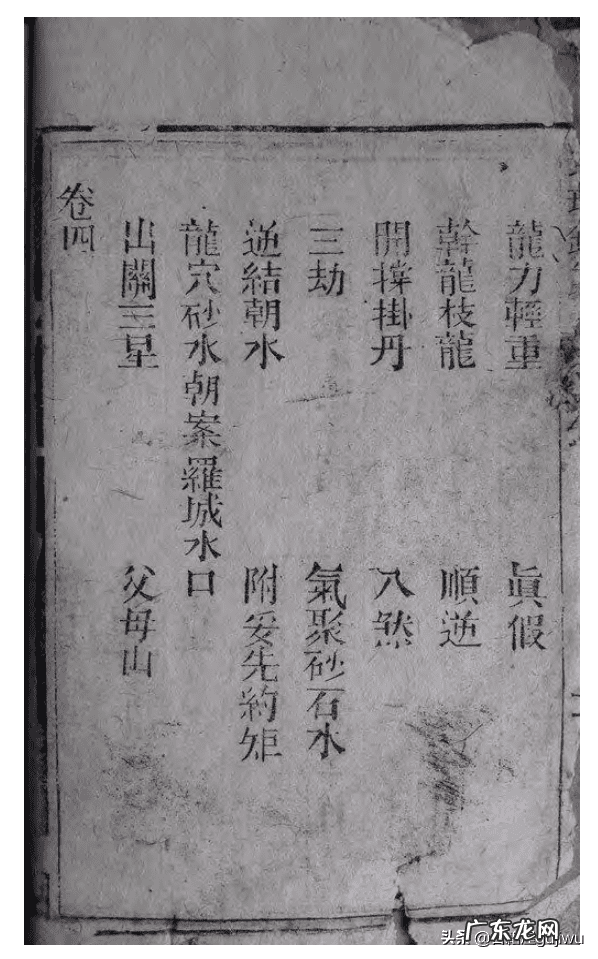 龍力輕重　眞假
幹龍枝龍　順逆
開撑掛丹　八煞
三劫　氣聚砂石水
逆結朝水　附妥先約矩
龍穴砂水朝案羅城水口
出關三星　父母山
卷四
广东龙网